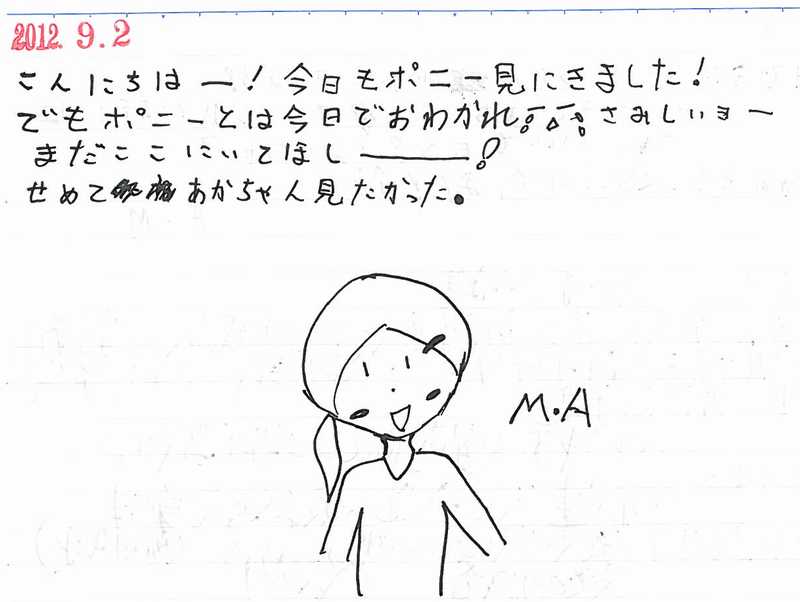 2012. 9. 2
こんにちはー！今日もポニー見にきました！
でもポニーとは今日でおわかれ。さみしいョー
まだここにいてほしー！
せめてあかちゃん見たかった。
M.A